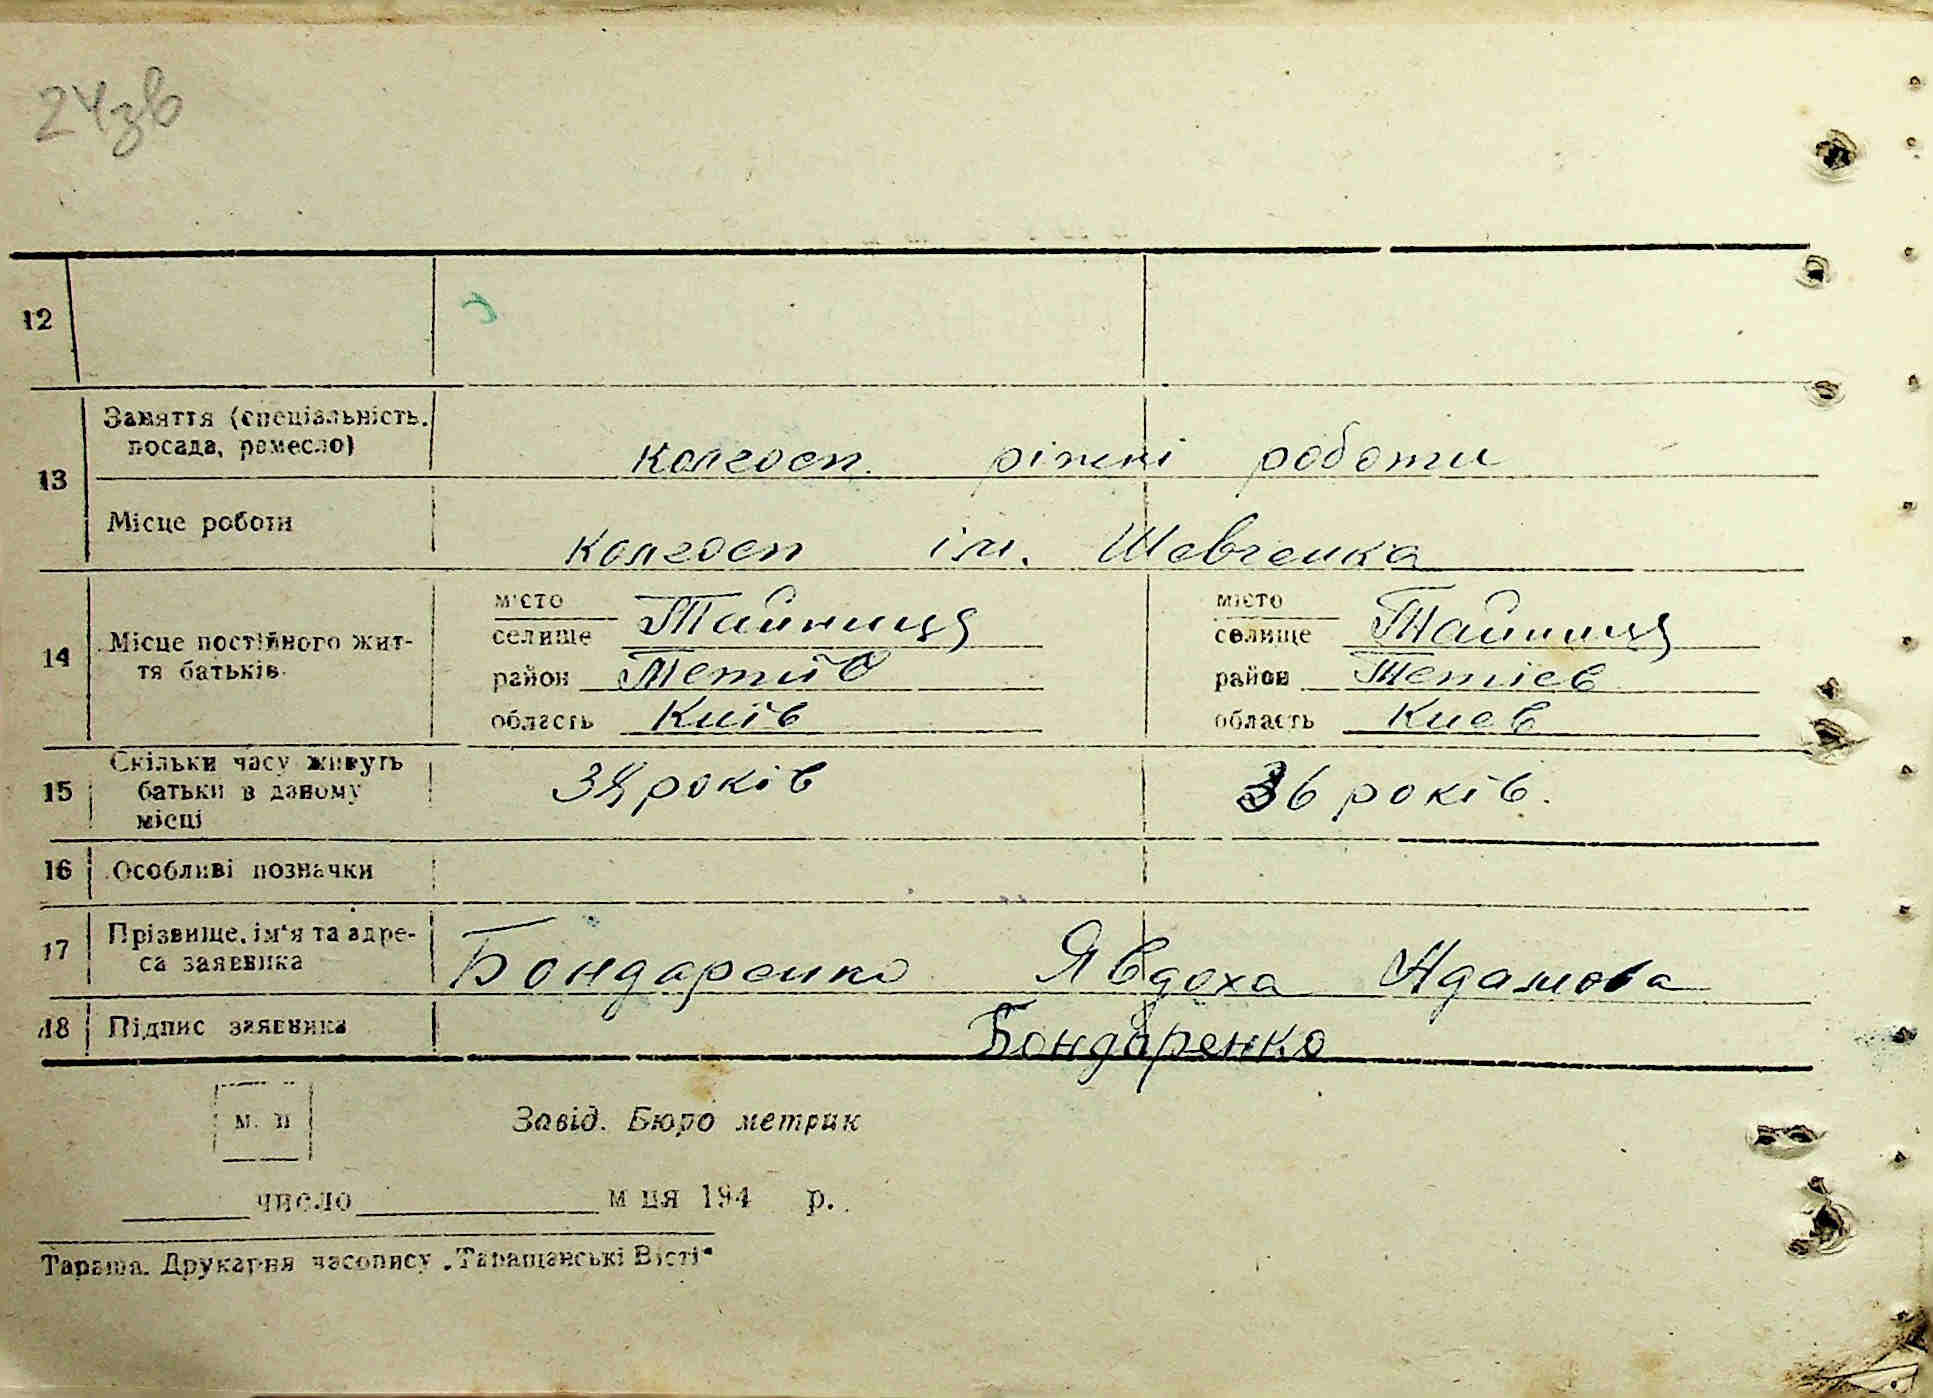 24зв
12
13 Заняття (спеціальність, посада, ремесло)
колгосп. ріжні роботи
Місце роботи
колгосп ім. Шевченка
14 Місце постійного життя батьків.
місто селище Тайниця
район Тетиїв
область Київ
місто селище Тайниця
район Тетіев
область Киев
15 Скільки часу живуть батьки в даному місці
34 років
36 років.
16 Особливі позначки
17 Прізвище, ім'я та адреса заявника
Бондаренко Явдоха Адамова
18 Підпис заявника
Бондаренко
м. п
Завід. Бюро метрик
число м ця 194 р.
Тараща. Друкарня часопису „Таращанські Вісті"